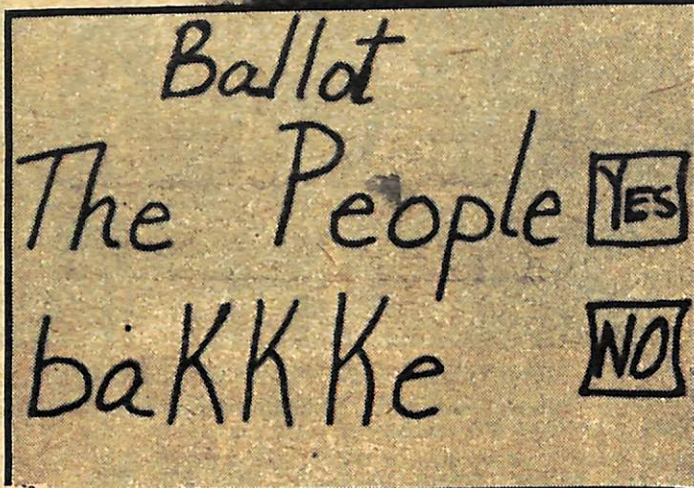 Ballot
The People YES
baKKKe NO